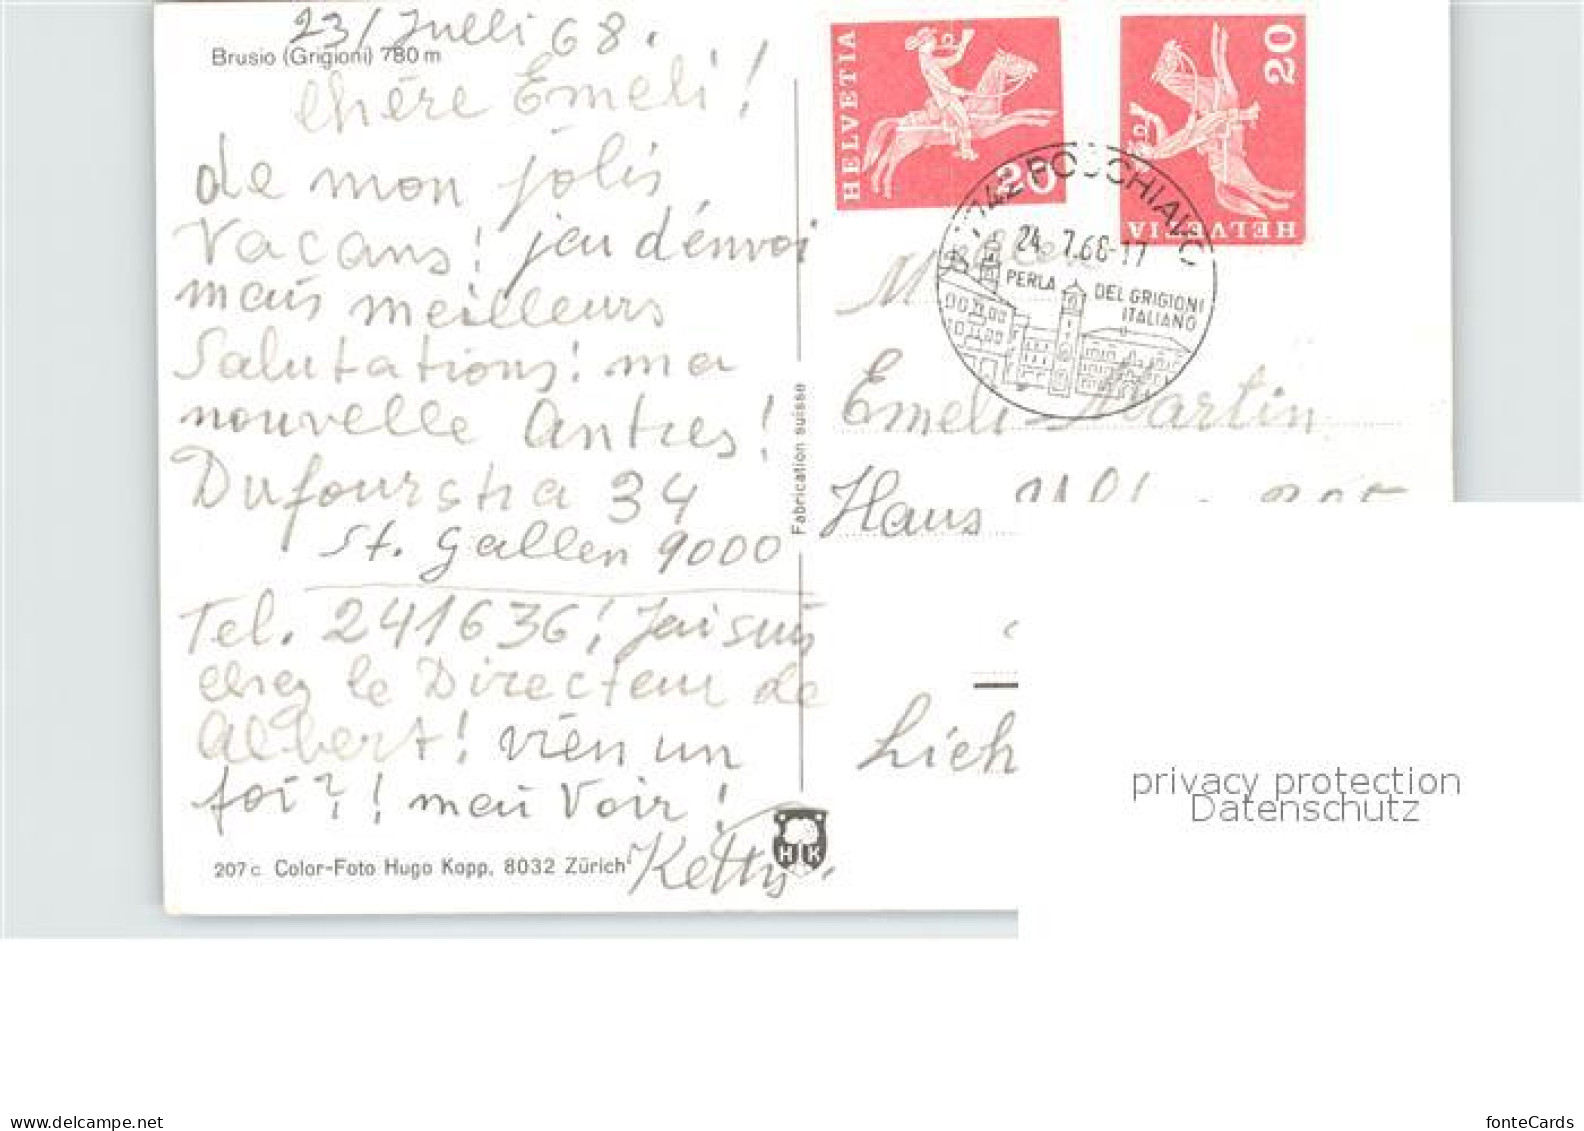 23/Julli 68.
Brusio (Grigioni) 780 m
chère Emeli!
de mon jolis
Vacans! jeu d'énvoi
mais meilleurs
Salutations! ma
nouvelle Antres!
Dufourstra 34
St. Gallen 9000
Tel. 241636! J'ai suis
chez le Directeur de
Albert! vién un
foi?! mai Voir!
Ketty.
207 c. Color-Foto Hugo Kopp, 8032 Zürich
H K
Fabrication suisse
HELVETIA
20
20
HELVETIA
7742 POSCHIAVO
24.7.68-17
PERLA DEL GRIGIONI
ITALIANO
Emeli Martin
Haus
Lieh
privacy protection
Datenschutz
www.delcampe.net
fonteCards